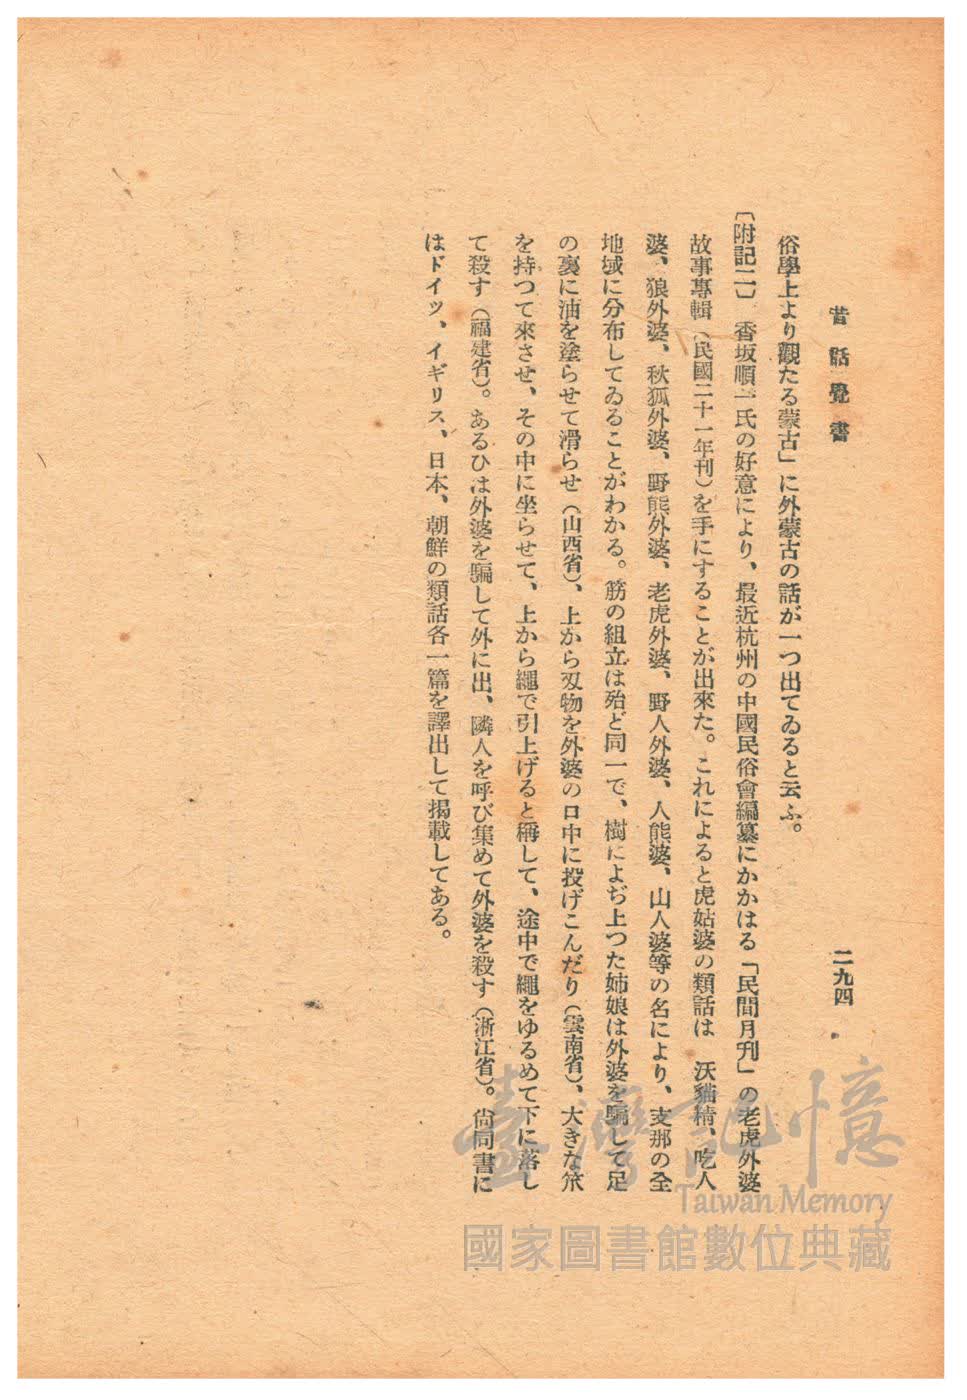 昔話覺書
二九四
俗學上より觀たる蒙古」に外蒙古の話が一つ出てゐると云ふ。
〔附記二〕　香坂順一氏の好意により、最近杭州の中國民俗會編纂にかかはる「民間月刊」の老虎外婆
故事專輯（民國二十一年刊）を手にすることが出來た。これによると虎姑婆の類話は　沃貓精、吃人
婆、狼外婆、秋狐外婆、野熊外婆、老虎外婆、野人外婆、人熊婆、山人婆等の名により、支那の全
地域に分布してゐることがわかる。筋の組立は殆ど同一で、樹によぢ上つた姉娘は外婆を騙して足
の裏に油を塗らせて滑らせ（山西省）、上から刄物を外婆の口中に投げこんだり（雲南省）、大きな笊
を持つて來させ、その中に坐らせて、上から繩で引上げると稱して、途中で繩をゆるめて下に落し
て殺す（福建省）。あるひは外婆を騙して外に出、隣人を呼び集めて外婆を殺す（浙江省）。尙同書に
はドイツ、イギリス、日本、朝鮮の類話各一篇を譯出して揭載してある。
臺灣記憶
Taiwan Memory
國家圖書館數位典藏